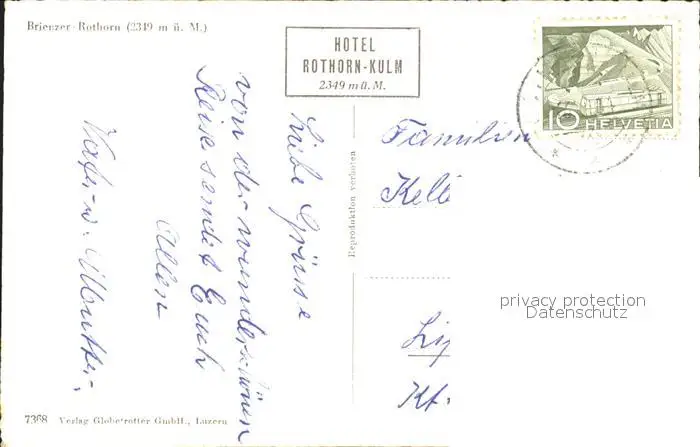 Brienzer Rothorn (2349 m ü. M.)
HOTEL
ROTHORN-KULM
2349 m ü. M.
10 HELVETIA
Liebe Grüsse
von der wunderschönen
Reise sendet Euch
Allen
Vater u. Mutter.
Reproduktion verboten
Familien
Kell
Kt.
privacy protection
Datenschutz
7368 Verlag Globetrotter GmbH., Luzern